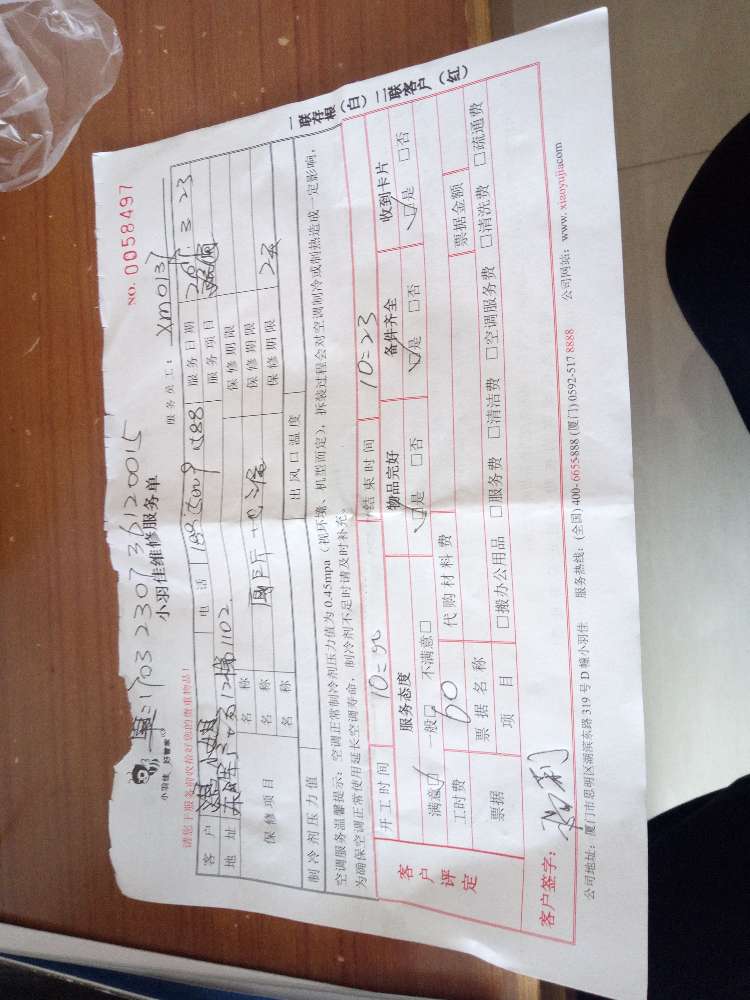 1703 2307 36120015
NO. 0058497
小羽佳 好管家
小羽佳维修服务单
服务员工： XM0137
请您于服务前收拾好您的贵重物品！
客户 小姐 电话 服务日期 3 23
地址 1102. 服务项目
保修项目 名称 保修期限
名称 保修期限
名称 保修期限 2天
制冷剂压力值 出风口温度
空调服务温馨提示：空调正常制冷剂压力值为 0.45mpa（视环境、机型而定），拆装过程会对空调制冷或制热造成一定影响，
为确保空调正常使用延长空调寿命，制冷剂不足时请及时补充。
一联存根（白） 二联客户（红）
客户评定
开工时间 结束时间 10=23
服务态度 物品完好 备件齐全 收到卡片
满意□ 一般□ 不满意□ □是 □否 □是 □否 □是 □否
工时费 60 代购材料费
票据 票据名称 票据金额
项目 □搬办公用品 □服务费 □清洁费 □空调服务费 □清洗费 □疏通费
客户签字：
公司地址：厦门市思明区湖滨东路 319 号 D 幢小羽佳 服务热线：(全国) 400-6655-888 (厦门) 0592-517 8888 公司网站：www.xiaoyujia.com